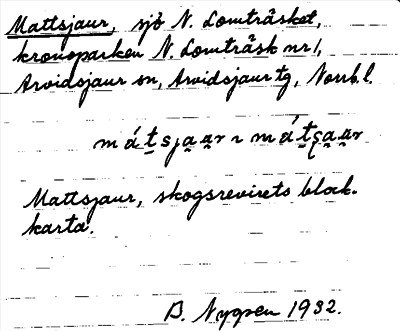 Mattsjaur, sjö N. Lomträsket,
kronoparken N. Lomträsk nr 1,
Arvidsjaur sn, Arvidsjaur tg, Norrb. l.
má́t̲sja̮a̮r ~ má́t̲ʂa̮a̮r
Mattsjaur, skogsrevirets block-
karta.
B. Nygren 1932.